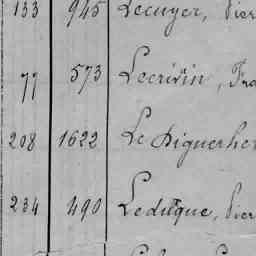 133 945 Lecuyer, Pier
77 573 Lecrivin, Fra
208 1622 Le Diguerher
234 490 Leduque, Pier